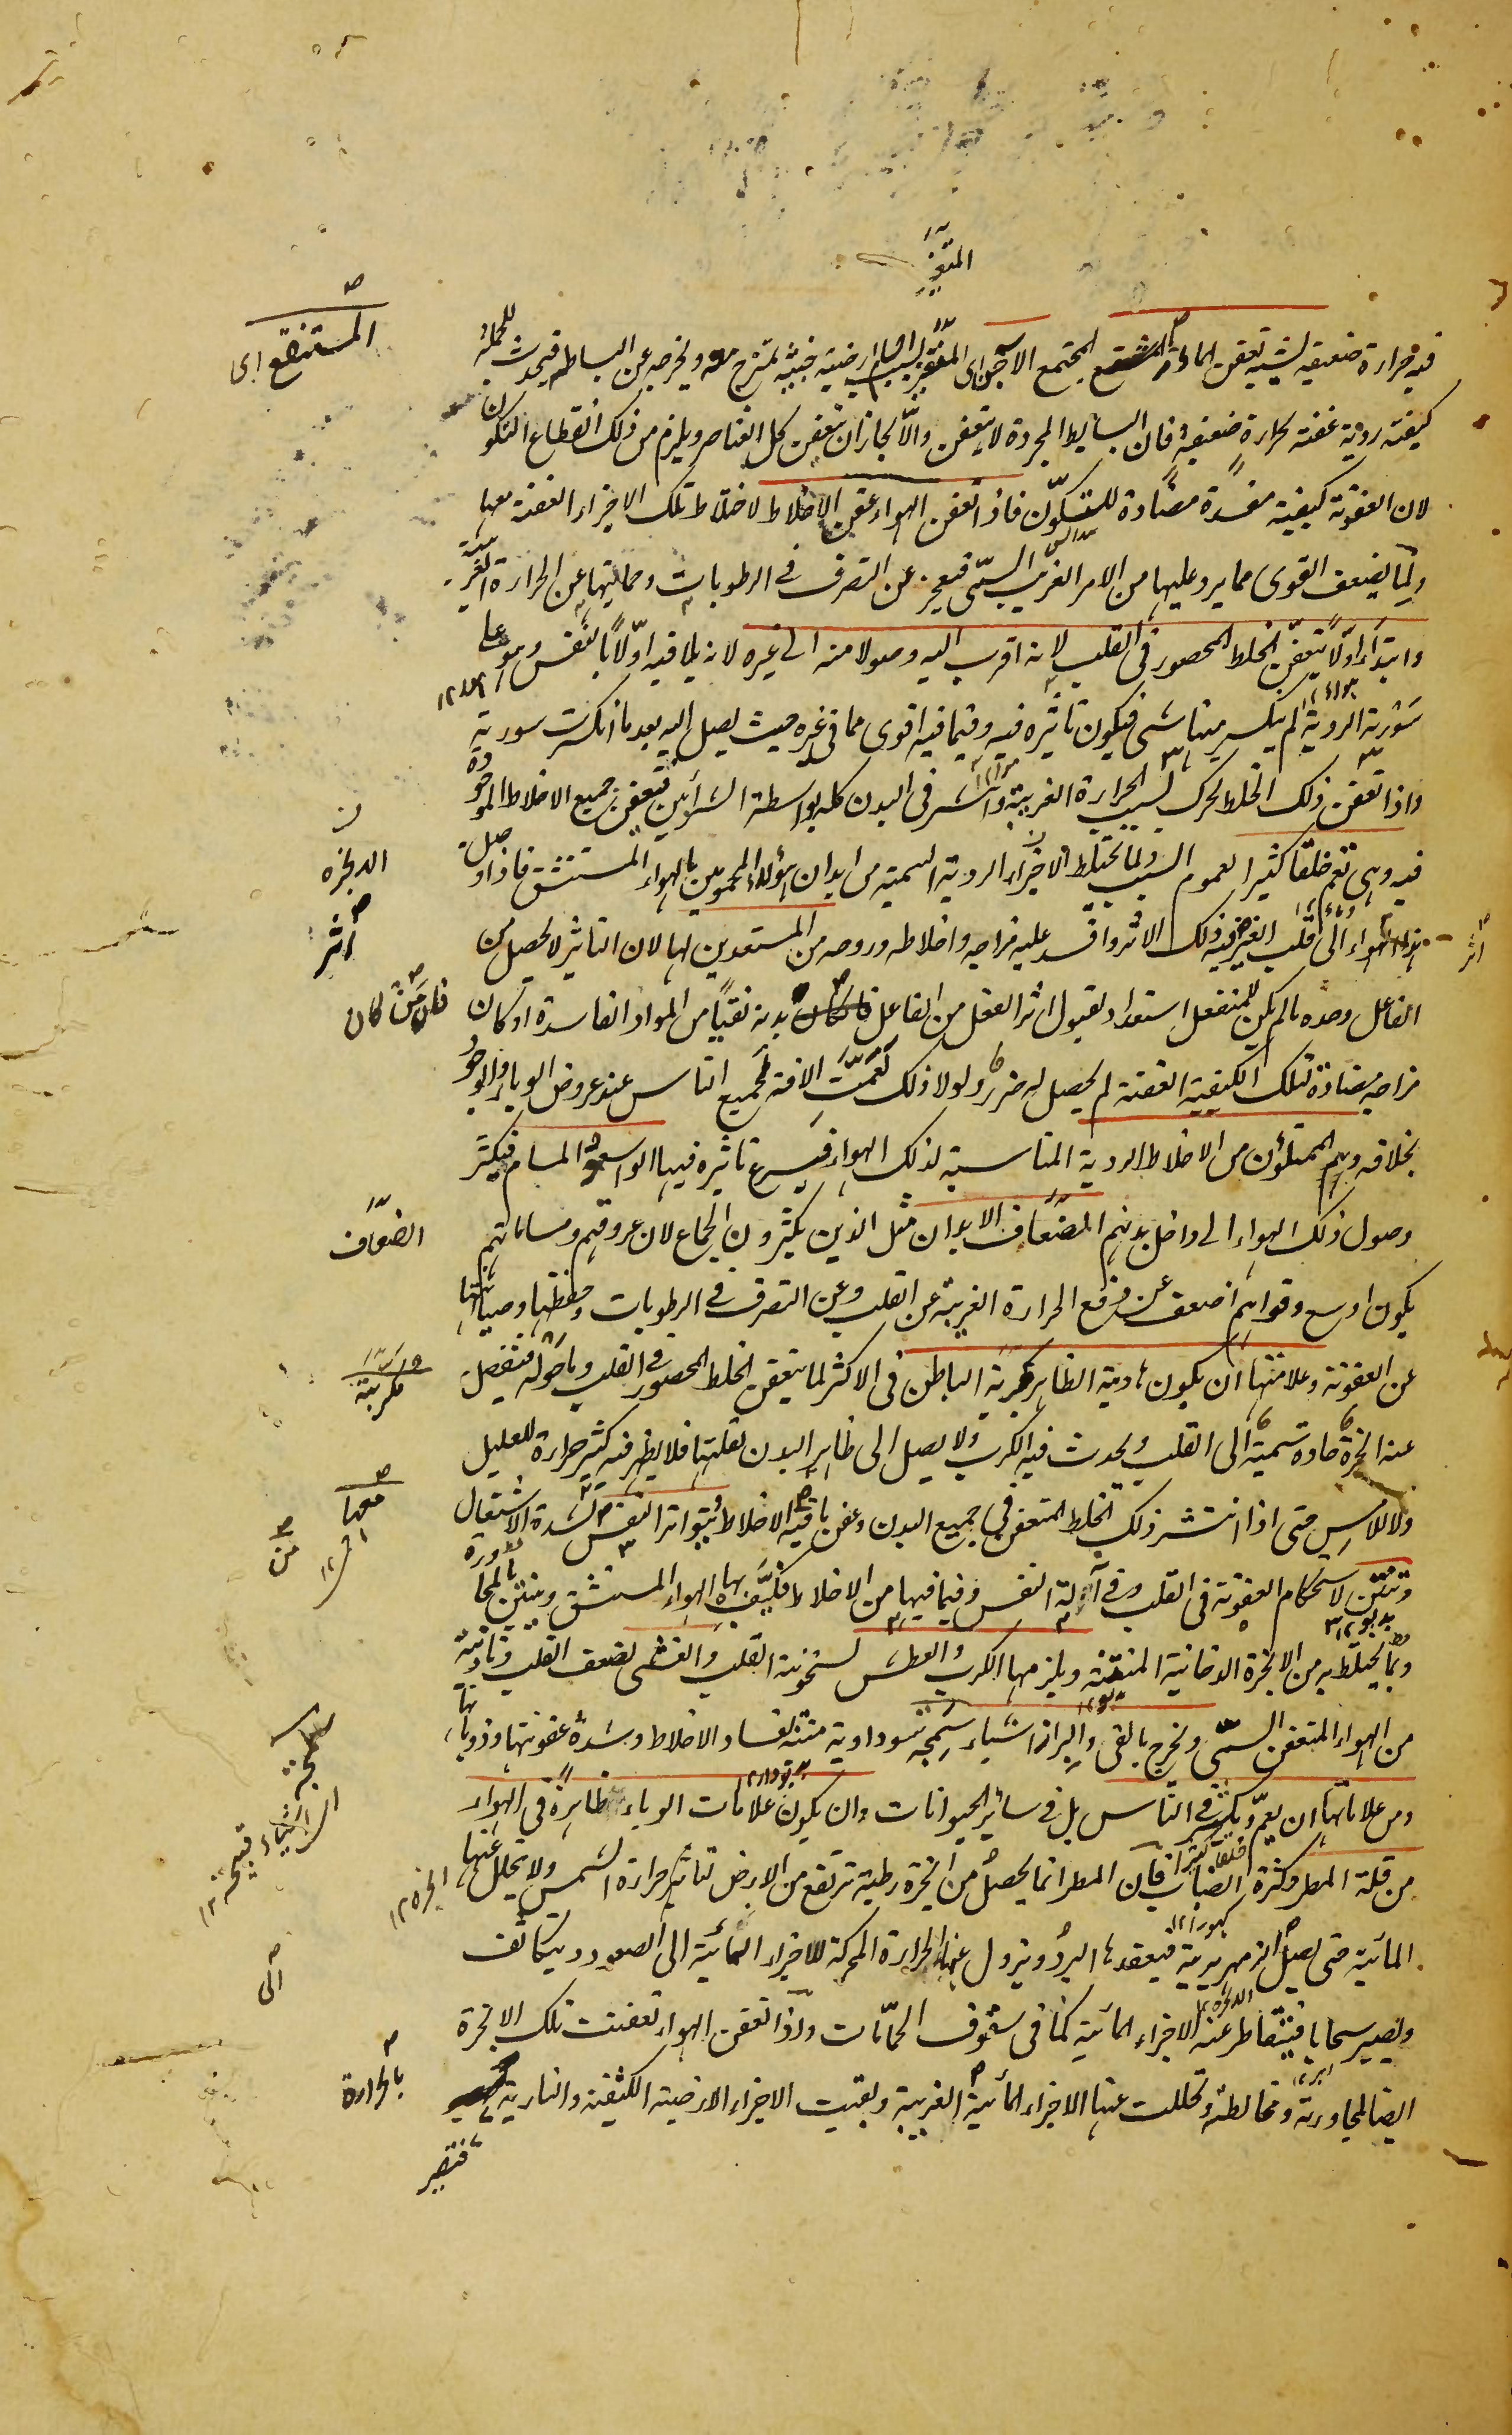 المتغیر
فیه حرارة ضعیفة یشبه تعفن الماء المستنقع المجتمع الآجن ای المتغیر لسبب اجزاء ارضیة خبیثة تمتزج معه ویخرجه عن البساطة فیحدث للجملة
کیفیة ردیة عفنة لحرارة ضعیفة فان البسایط المجردة لا یتعفن والا لجاز ان یتعفن کل العناصر ویلزم من ذلک انقطاع التکون
لان العفونة کیفیة مفسدة مضادة للتکون فاذا تعفن الهواء عفن الاخلاط لاختلاط تلک الاجزاء العفنة معها
ولما یضعف القوی مما یرد علیها من الامر الغریب السمی فیعجز عن التصرف فی الرطوبات وحمایتها عن الحرارة الغریبة
وابتداء اولا بتعفن الخلط المحصور فی القلب لانه اقرب الیه وصولا منه الی غیره لانه یلاقیه اولا بالتنفس وهو علی
سورته الردیة لم ینکسر منها شئ فیکون تاثیره فیه وفیما فیه اقوی مما فی غیره حیث یصل الیه بعد ما انکسرت سورته
واذا تعفن ذلک الخلط تحرک لسبب الحرارة الغریبة وانتشر فی البدن کله بواسطة الشرائین فتعفن جمیع الاخلاط الموجودة
فیه وهی تعم خلقا کثیرا لعموم السبب ولما یختلط الاجزاء الردیة السمیة من ابدان هؤلاء المحمومین بالهواء المستنشق فاذا وصل
هذا الهواء الی قلب الغیر فیه ذلک الاثر وافسد علیه مزاجه واخلاطه وروحه من المستعدین لها لان التاثیر لا یحصل من
الفاعل وحده ما لم یکن للمنفعل استعداد لقبول اثر الفعل من الفاعل بدنه نقیا من المواد الفاسدة او کان
مزاجه مضادة لتلک الکیفیة العفنة لم یحصل له ضرر ولولا ذلک لعمت الافة لجمیع الناس عند عروض الوباء والوجود
بخلافه وهم الممتلؤن من الاخلاط الردیة المناسبة لذلک الهواء فیسرع تاثیره فیها الواسعو المسام فیکثر
وصول ذلک الهواء الی داخل بدنهم الضعاف الابدان مثل الذین یکثرون الجماع لان عروقهم ومساماتهم
یکون اوسع وقواهم اضعف عن دفع الحرارة الغریبة عن القلب وعن التصرف فی الرطوبات وحفظها وصیانتها
عن العفونة وعلامتها ان یکون هادیة الظاهر مکربة الباطن فی الاکثر لما یتعفن الخلط المحصور فی القلب وما حوله فینفصل
عنه ابخرة حادة سمیة الی القلب ویحدث فیه الکرب ولا یصل الی ظاهر البدن لقلتها فلا یظهر فیه کثیر حرارة للعلیل
ولا للامس حتی اذا انتشر ذلک الخلط المتعفن فی جمیع البدن وعفن باقیة الاخلاط یتواتر النفس لشدة الاشتعال
وینتن لاستحکام العفونة فی القلب وفی آلة النفس وفیما فیها من الاخلاط فتکیف بها الهواء المستنشق وینتن بالمجاورة
وبما یختلط به من الابخرة الدخانیة المنتنة ویلزمها الکرب والعطش لسخونة القلب والغشی لضعف القلب وتاذیه
من الهواء المتعفن السمی ویخرج بالقی والبراز اشیاء سمجة سوداویة منتنة لفساد الاخلاط وشدة عفونتها وذوبانها
ومن علاماتها ان یعم ویکثر فی الناس بل فی سائر الحیوانات وان یکون علامات الوباء ظاهرة فی الهواء
من قلة المطر وکثرة الضباب فان المطر انما یحصل من ابخرة رطبة ترتفع من الارض لتاثیر حرارة الشمس ولا یتحلل عنها
المائیة حتی یصل الزمهریریة فیعقدها البرد ویزول عنها الحرارة المحرکة للاجزاء المائیة الی الصعود ویتکاثف
ویصیر سحابا فیتقاطر عنه الاجزاء المائیة کما فی سقوف الحمامات واذا تعفن الهواء تعفنت تلک الابخرة
ایضا لمجاورته ومخالطته وتحللت عنها الاجزاء المائیة الغریبة وبقیت الاجزاء الارضیة الکثیفة والناریة
فتصیر
المستنقع ای
اثر
فان من کان
الضعاف
مکربة
معها
من
سمجة
الی
بالحرارة